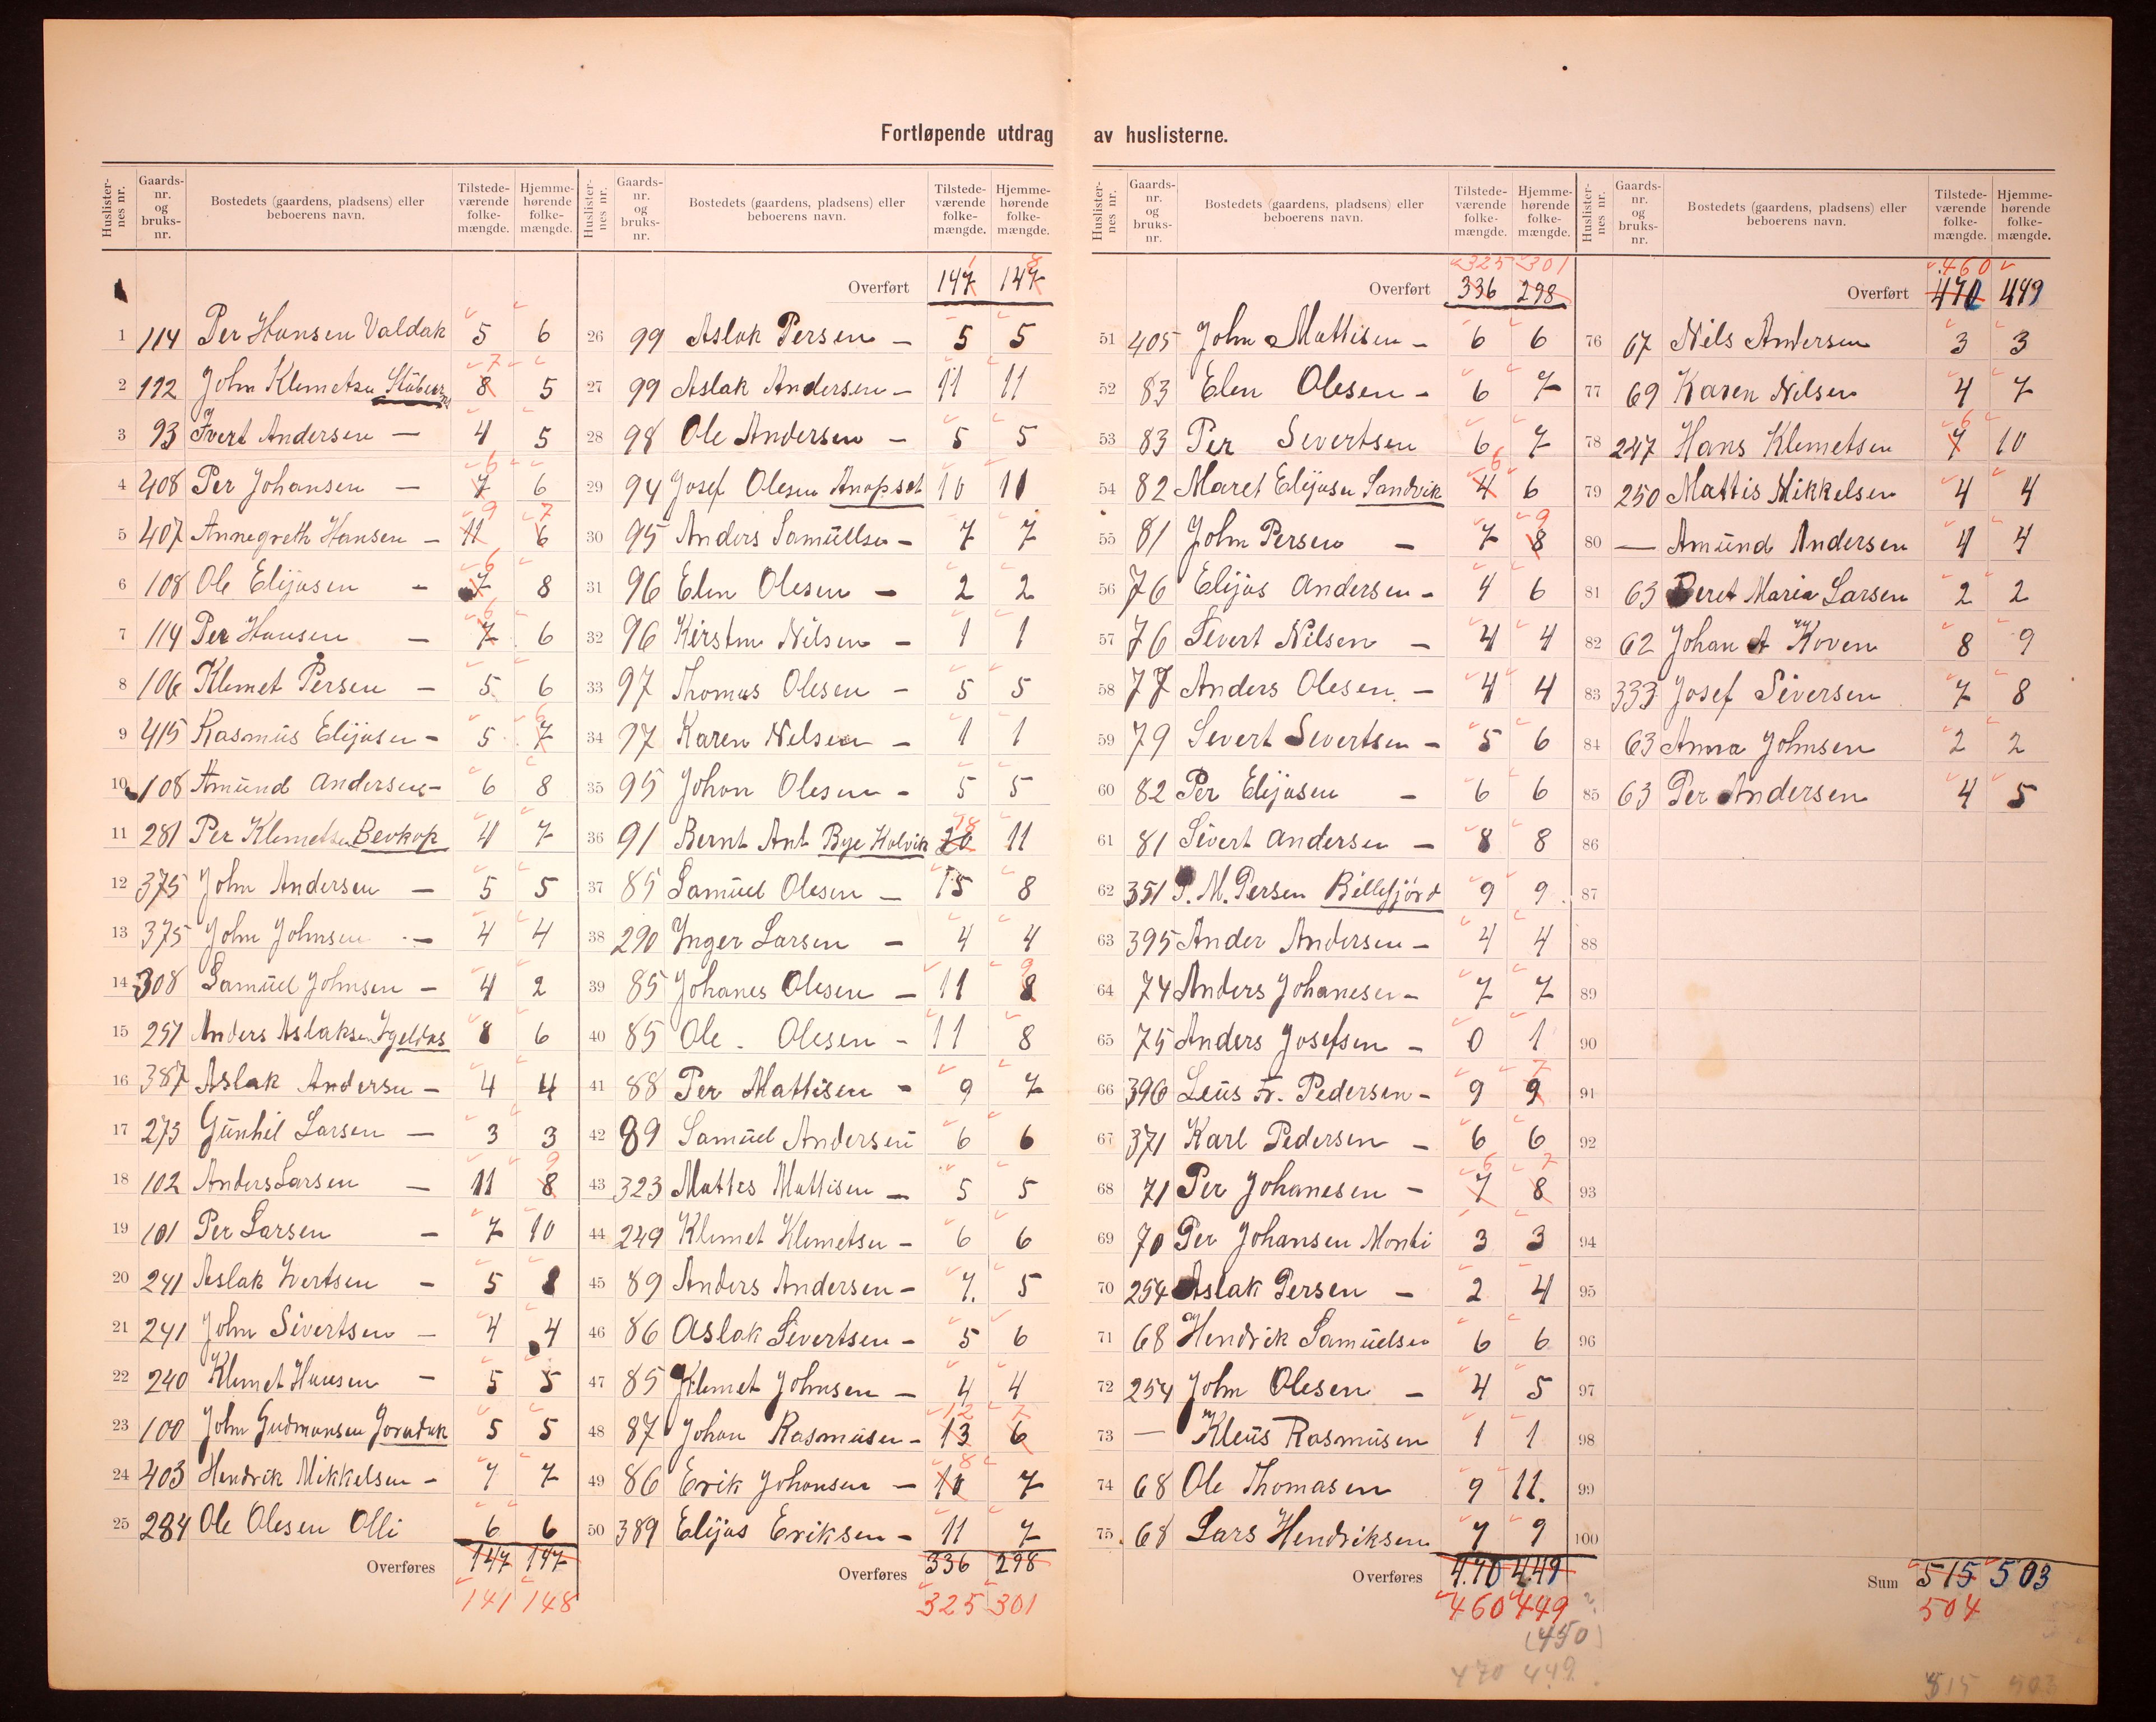 Fortløpende utdrag av huslisterne.
Huslisternes nr. Gaardsnr. og bruksnr. Bostedets (gaardens, pladsens) eller beboerens navn. Tilstedeværende folkemængde. Hjemmehørende folkemængde.
1 114 Per Hansen Valdak 5 6
2 112 John Klemetsen 8 7 5
3 93 Ivert Andersen — 4 5
4 408 Per Johansen — 7 6 6
5 407 Annegreth Hansen — 11 9 6 7
6 108 Ole Elijasen — 7 6 8
7 114 Per Hansen — 7 6 6
8 106 Klemet Persen — 5 6
9 415 Rasmus Elijasen — 5 7 6
10 108 Amund Andersen — 6 8
11 281 Per Klemetsen Bevkop 4 7
12 375 John Andersen — 5 5
13 375 John Johnsen — 4 4
14 308 Samuel Johnsen — 4 2
15 251 Anders Aslaksen 8 6
16 387 Aslak Andersen — 4 4
17 273 Gunhil Larsen — 3 3
18 102 Anders Larsen — 11 8 9
19 101 Per Larsen — 7 10
20 241 Aslak Ivertsen — 5 8
21 241 John Sivertsen — 4 4
22 240 Klemet Hansen — 5 5
23 100 John Gudmunsen 5 5
24 403 Hendrik Mikkelsen — 7 7
25 284 Ole Olesen Olli 6 6
Overføres 147 147
141 148
Huslisternes nr. Gaardsnr. og bruksnr. Bostedets (gaardens, pladsens) eller beboerens navn. Tilstedeværende folkemængde. Hjemmehørende folkemængde.
Overført 147 1 147 8
26 99 Aslak Persen — 5 5
27 99 Aslak Andersen — 11 11
28 98 Ole Andersen — 5 5
29 94 Josef Olesen Anopset 10 10
30 95 Anders Samullsen — 7 7
31 96 Elen Olesen — 2 2
32 96 Kirsten Nilsen — 1 1
33 97 Thomas Olesen — 5 5
34 97 Karen Nilsen — 1 1
35 95 Johan Olesen — 5 5
36 91 Bernt Ant Bye Holvik 20 18 11
37 85 Samuel Olesen — 15 8
38 290 Inger Larsen — 4 4
39 85 Johanes Olesen — 11 8 9
40 85 Ole Olesen — 11 8
41 88 Per Mattisen — 9 7
42 89 Samuel Andersen 6 6
43 323 Mattes Mattisen — 5 5
44 249 Klemet Klemetsen — 6 6
45 89 Anders Andersen — 7. 5
46 86 Aslak Sivertsen — 5 6
47 85 Klemet Johnsen — 4 4
48 87 Johan Rasmusen — 13 12 6 7
49 86 Erik Johansen — 10 8 7
50 389 Elijas Eriksen — 11 7
Overføres 336 298
325 301
Huslisternes nr. Gaardsnr. og bruksnr. Bostedets (gaardens, pladsens) eller beboerens navn. Tilstedeværende folkemængde. Hjemmehørende folkemængde.
325 301
Overført 336 298
51 405 John Mattisen — 6 6
52 83 Elen Olesen — 6 7
53 83 Per Severtsen 6 7
54 82 Maret Elijasen Sandvik 4 6 6
55 81 John Persen — 7 8 9
56 76 Elijas Andersen — 4 6
57 76 Sivert Nilsen — 4 4
58 77 Anders Olesen — 4 4
59 79 Severt Severtsen — 5 6
60 82 Per Elijasen — 6 6
61 81 Sivert Andersen — 8 8
62 351 P. M. Persen Billefjord 9 9
63 395 Ander Andersen — 4 4
64 74 Anders Johanesen — 7 7
65 75 Anders Josefsen — 0 1
66 396 Leus Fr. Pedersen — 9 9 7
67 371 Karl Pedersen — 6 6
68 71 Per Johanesen — 7 6 8 7
69 70 Per Johansen Monti 3 3
70 254 Aslak Persen — 2 4
71 68 Hendrik Samuelsen 6 6
72 254 John Olesen — 4 5
73 — Kleus Rasmusen 1 1
74 68 Ole Thomasen 9 11.
75 68 Lars Hendriksen 7 9
Overføres 470 449
460 449 ?
(450)
470 449.
Huslisternes nr. Gaardsnr. og bruksnr. Bostedets (gaardens, pladsens) eller beboerens navn. Tilstedeværende folkemængde. Hjemmehørende folkemængde.
460
Overført 470 449
76 67 Nils Andersen 3 3
77 69 Karen Nilsen 4 7
78 247 Hans Klemetsen 7 6 10
79 250 Mattis Mikkelsen 4 4
80 — Amund Andersen 4 4
81 63 Beret Maria Larsen 2 2
82 62 Johan A Koven 8 9
83 333 Josef Siversen 7 8
84 63 Anna Johnsen 2 2
85 63 Per Andersen 4 5
86
87
88
89
90
91
92
93
94
95
96
97
98
99
100
Sum 515 503
504
515 503